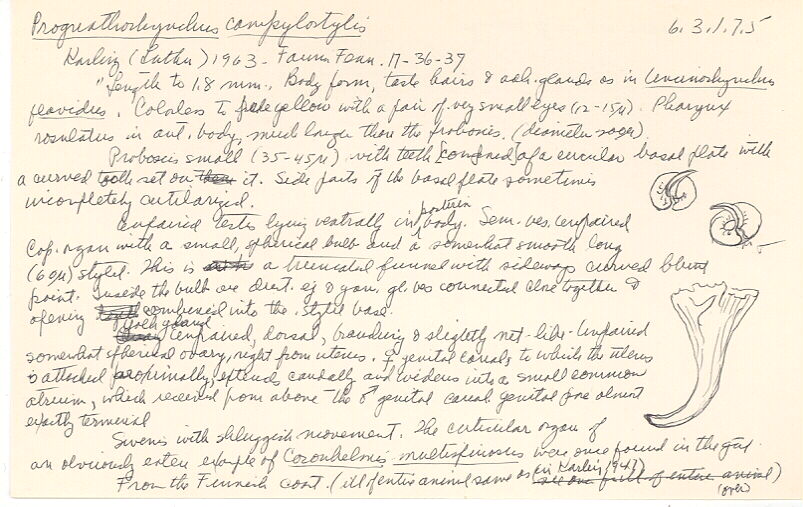 Progneathorhynchus campylostylis 6.3.1.7.5
Karling (Luther) 1963 - Fauna Fenn. 17-36-37
"Length to 1.8 mm., Body form, taste hairs & adh. glands as in
flavidus. Colorless to pale yellow with a pair of very small eyes (12-15µ). Pharynx
rosulatus in ant. body, much larger than the proboscis. (diameter
Proboscis small (35-45µ) with teeth [composed] of a circular basal plate with
a curved tooth set on it. Side parts of the basal plate sometimes
incompletely cuticularized.
Unpaired testes lying ventrally in posterior body. Sem. ves. unpaired
Cop. organ with a small, spherical bulb and a somewhat smooth long
(60µ) stylet. This is a truncated funnel with sideways curved blunt
point. Inside the bulb are duct. ej & gran. gl. ves connected close together &
opening combined into the stylet base.
Yolk gland unpaired, dorsal, branching & slightly net-like. Unpaired
somewhat spherical ovary, right from uterus. ♀ genital canals to which the uterus
is attached proximally, extends caudally and widens into a small common
atrium, which received from above the ♂ genital canal. genital pore almost
exactly terminal
Swims with sluggish movement. The cuticular organ of
an obviously eaten example of Coronhelmis multispinosus were once found in the gut.
From the Finnish coast. (ill. of entire animal same as in Karling 1947)
(over)